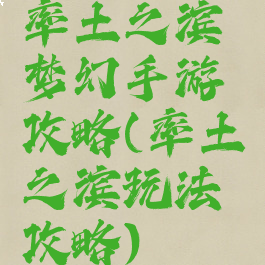 率土之滨
梦幻手游
攻略(率土
之滨玩法
攻略)